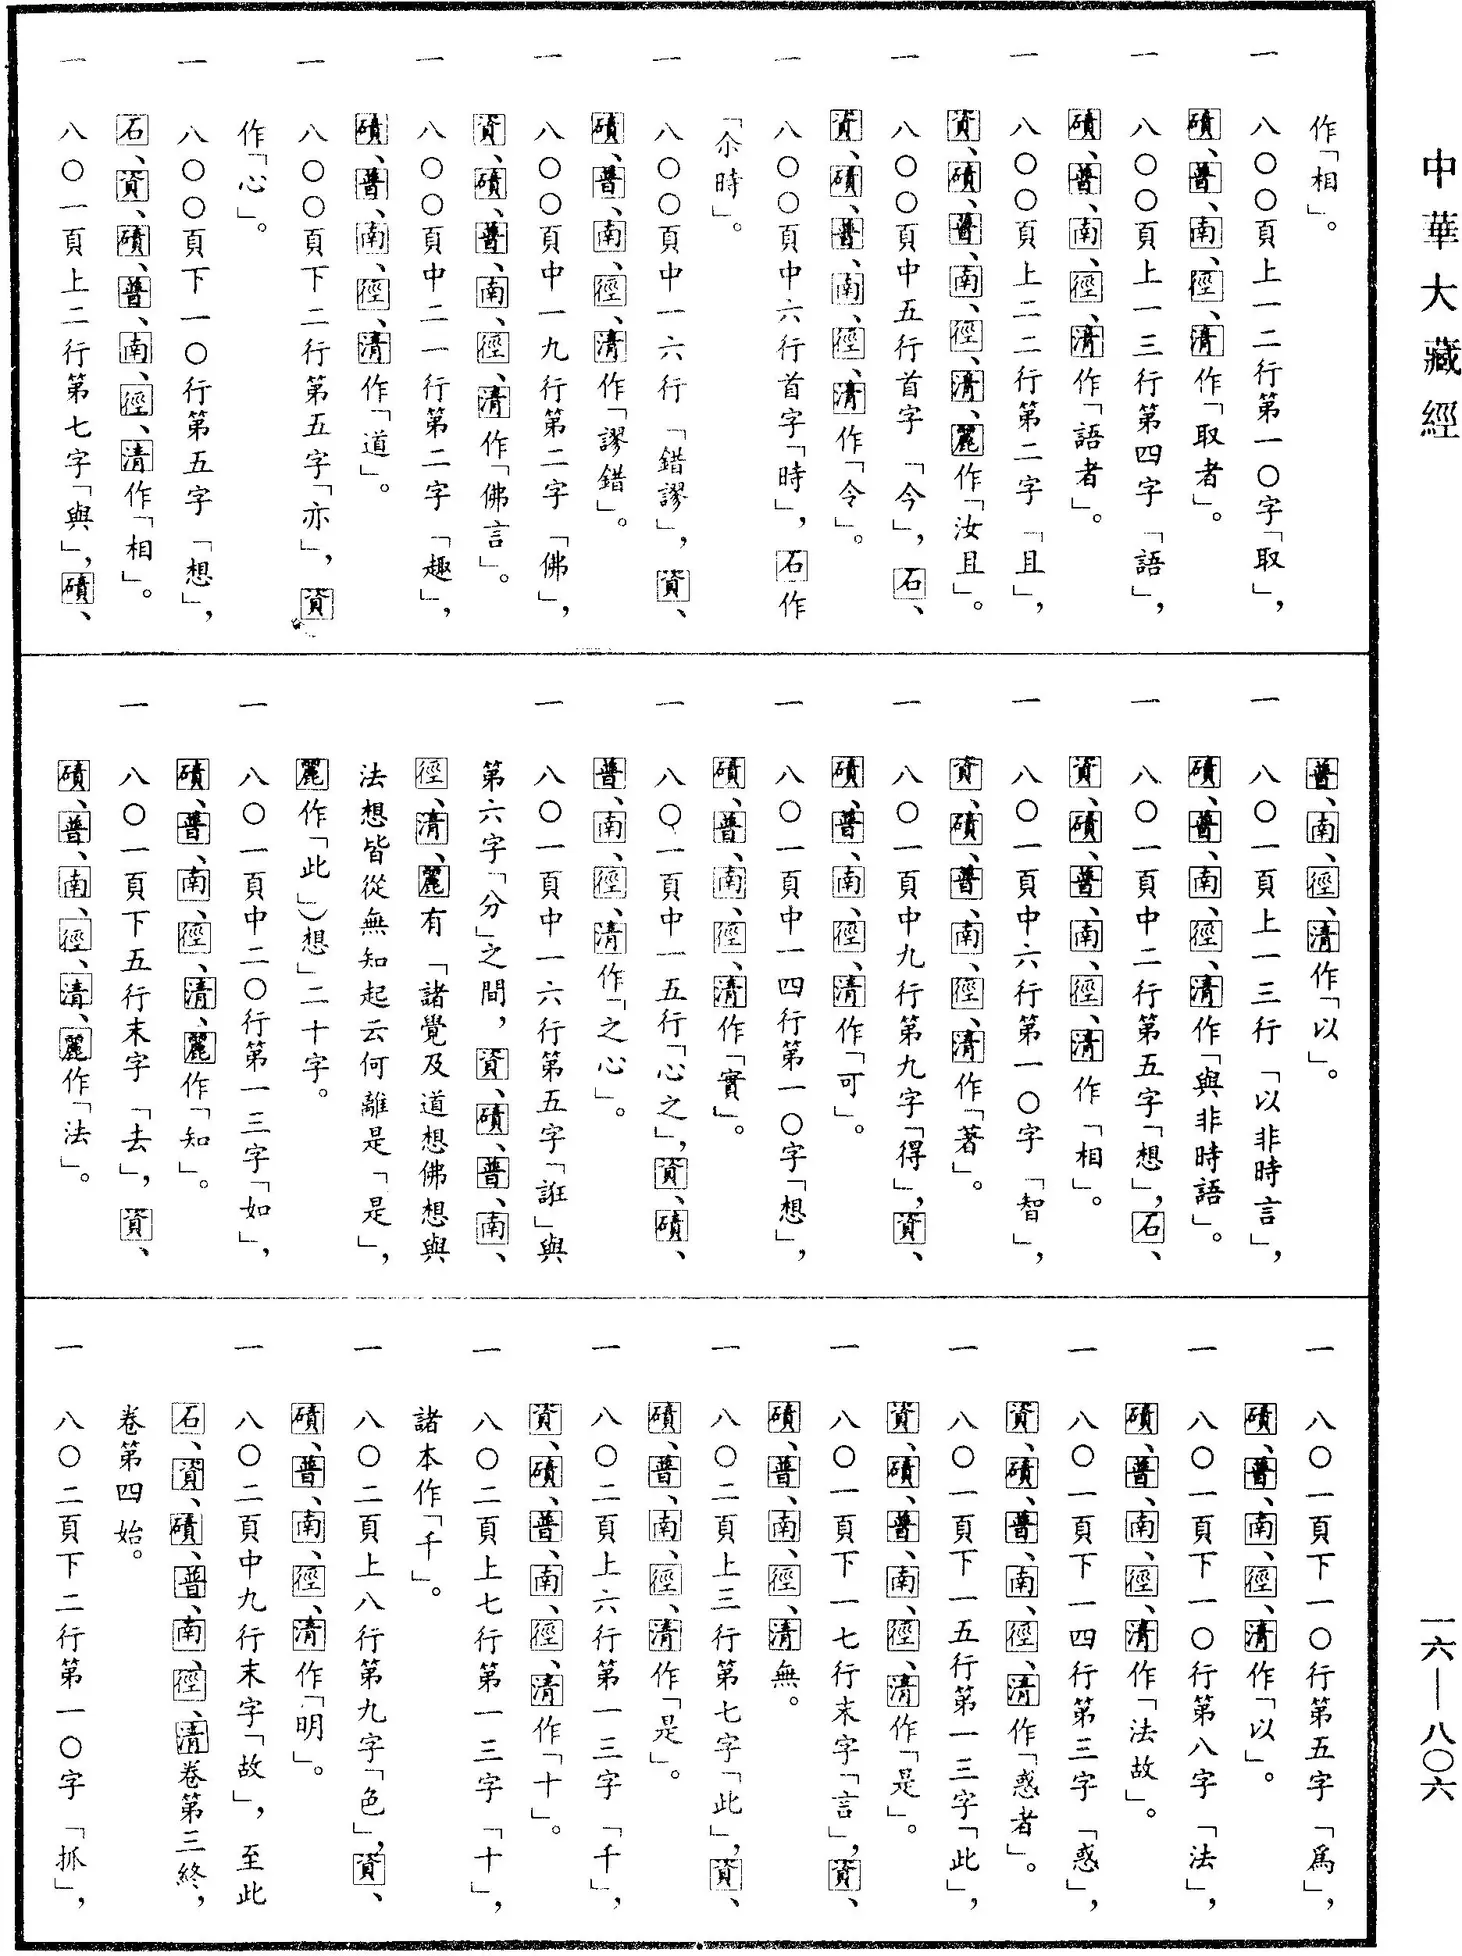 中華大藏經
一六—八〇六
作「相」。
一 八〇〇頁上一二行第一〇字「取」，
磧、普、南、徑、清作「取者」。
一 八〇〇頁上一三行第四字「語」，
磧、普、南、徑、清作「語者」。
一 八〇〇頁上二二行第二字「且」，
資、磧、普、南、徑、清、麗作「汝且」。
一 八〇〇頁中五行首字「今」，石、
資、磧、普、南、徑、清作「令」。
一 八〇〇頁中六行首字「時」，石作
「尒時」。
一 八〇〇頁中一六行「錯謬」，資、
磧、普、南、徑、清作「謬錯」。
一 八〇〇頁中一九行第二字「佛」，
資、磧、普、南、徑、清作「佛言」。
一 八〇〇頁中二一行第二字「趣」，
磧、普、南、徑、清作「道」。
一 八〇〇頁下二行第五字「亦」，資
作「心」。
一 八〇〇頁下一〇行第五字「想」，
石、資、磧、普、南、徑、清作「相」。
一 八〇一頁上二行第七字「與」，磧、
普、南、徑、清作「以」。
一 八〇一頁上一三行「以非時言」，
磧、普、南、徑、清作「與非時語」。
一 八〇一頁中二行第五字「想」，石、
資、磧、普、南、徑、清作「相」。
一 八〇一頁中六行第一〇字「智」，
資、磧、普、南、徑、清作「著」。
一 八〇一頁中九行第九字「得」，資、
磧、普、南、徑、清作「可」。
一 八〇一頁中一四行第一〇字「想」，
磧、普、南、徑、清作「實」。
一 八〇一頁中一五行「心之」，資、磧、
普、南、徑、清作「之心」。
一 八〇一頁中一六行第五字「誑」與
第六字「分」之間，資、磧、普、南、
徑、清、麗有「諸覺及道想佛想與
法想皆從無知起云何離是「是」，
麗作「此」）想」二十字。
一 八〇一頁中二〇行第一三字「如」，
磧、普、南、徑、清、麗作「知」。
一 八〇一頁下五行末字「去」，資、
磧、普、南、徑、清、麗作「法」。
一 八〇一頁下一〇行第五字「爲」，
磧、普、南、徑、清作「以」。
一 八〇一頁下一〇行第八字「法」，
磧、普、南、徑、清作「法故」。
一 八〇一頁下一四行第三字「惑」，
資、磧、普、南、徑、清作「惑者」。
一 八〇一頁下一五行第一三字「此」，
資、磧、普、南、徑、清作「是」。
一 八〇一頁下一七行末字「言」，資、
磧、普、南、徑、清無。
一 八〇二頁上三行第七字「此」，資、
磧、普、南、徑、清作「是」。
一 八〇二頁上六行第一三字「千」，
資、磧、普、南、徑、清作「十」。
一 八〇二頁上七行第一三字「十」，
諸本作「千」。
一 八〇二頁上八行第九字「色」，資、
磧、普、南、徑、清作「明」。
一 八〇二頁中九行末字「故」，至此
石、資、磧、普、南、徑、清卷第三終，
卷第四始。
一 八〇二頁下二行第一〇字「抓」，